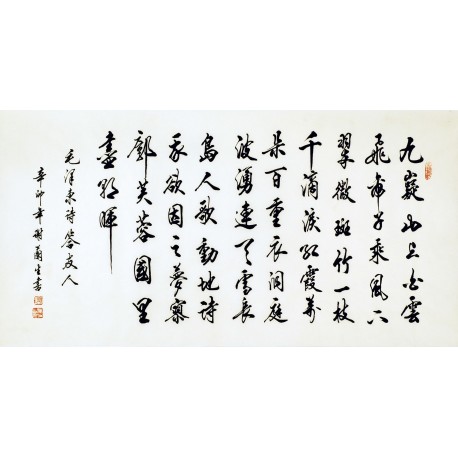 九嶷山上白雲
飛帝子乘風下
翠微斑竹一枝
千滴淚紅霞萬
朵百重衣洞庭
波湧連天雪長
島人歌動地詩
我欲因之夢寥
廓芙蓉國里
盡朝暉
毛澤東詩答友人
辛卯年 生書